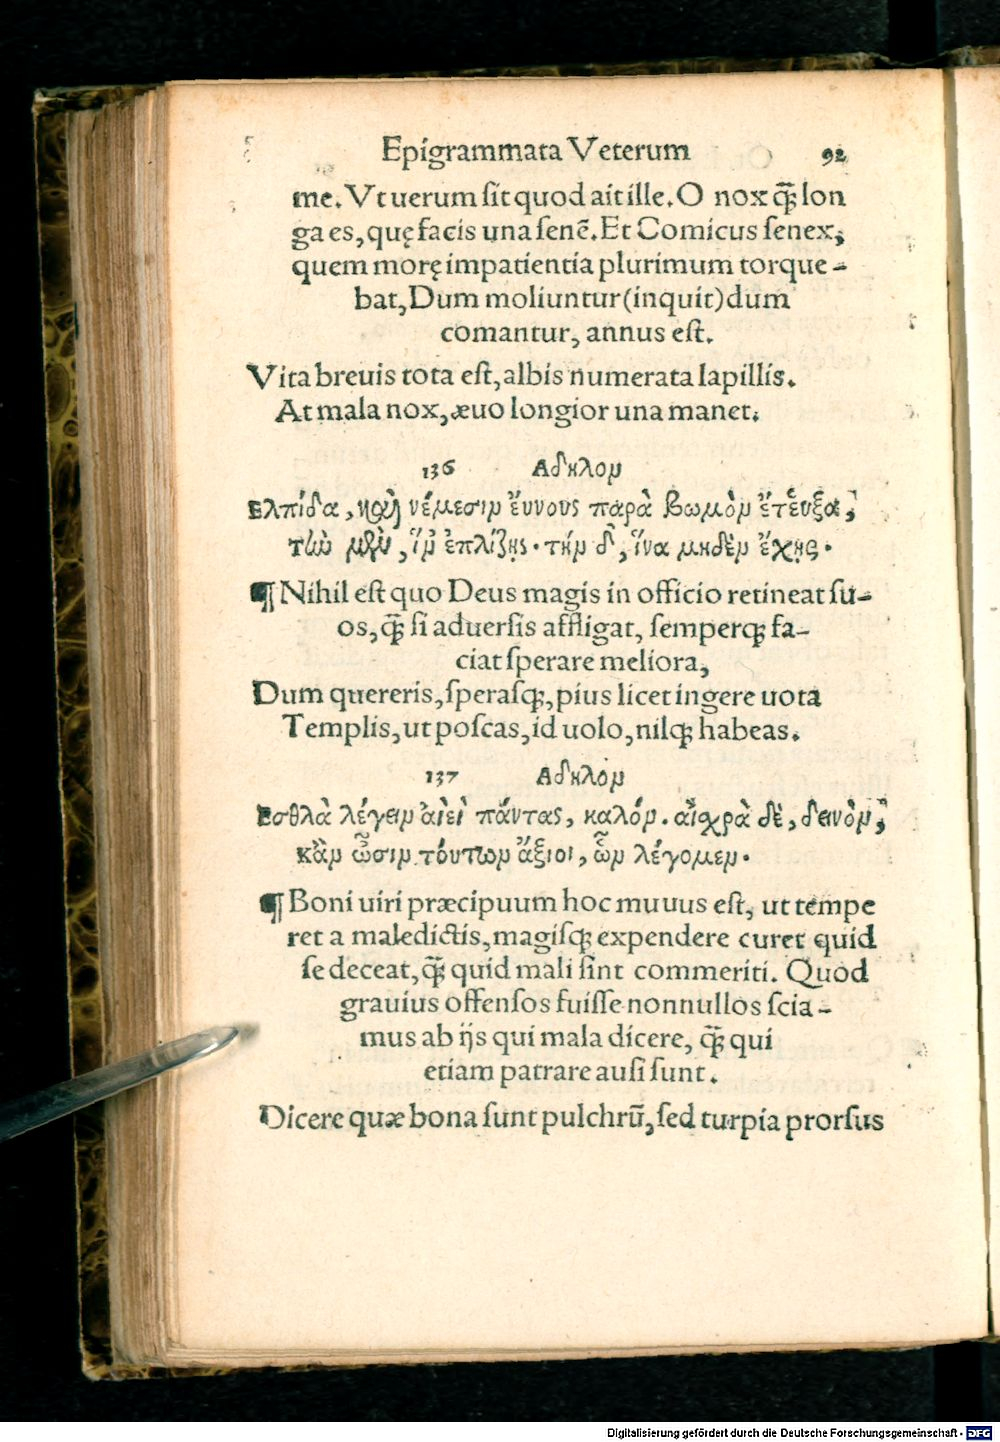 Epigrammata Veterum 92
me. Vt uerum sit quod ait ille. O nox q̃ꝫ lon
ga es, quę facis una senẽ. Et Comicus senex,
quem morę impatientia plurimum torque-
bat, Dum moliuntur (inquit) dum
comantur, annus est.
Vita breuis tota est, albis numerata lapillis.
At mala nox, æuo longior una manet.
136 Αδηλον
Ελπίδα, καὶ νέμεσιν ἔυνους παρὰ βωμὸν ἔτευξα,
τὼ μὲν, ἵν̓ ἐπλίζῃς. τὴν δ̓, ἵνα μηδὲν ἔχῃς.
¶ Nihil est quo Deus magis in officio retineat su-
os, q̃ꝫ si aduersis affligat, semperqꝫ fa-
ciat sperare meliora,
Dum quereris, sperasqꝫ, pius licet ingere uota
Templis, ut poscas, id uolo, nilqꝫ habeas.
137 Αδηλόν
Εσθλὰ λέγειν ἀιεὶ πάντας, καλόν. αἰσχρὰ δὲ, δεινὸν,
κἂν ὦσιν τόυτων ἄξιοι, ὧν λέγομεν.
¶ Boni uiri præcipuum hoc muuus est, ut tempe
ret a maledictis, magisqꝫ expendere curet quid
se deceat, q̃ꝫ quid mali sint commeriti. Quod
grauius offensos fuisse nonnullos scia-
mus ab ijs qui mala dicere, q̃ꝫ qui
etiam patrare ausi sunt.
Dicere quæ bona sunt pulchrũ, sed turpia prorsus
Digitalisierung gefördert durch die Deutsche Forschungsgemeinschaft - DFG